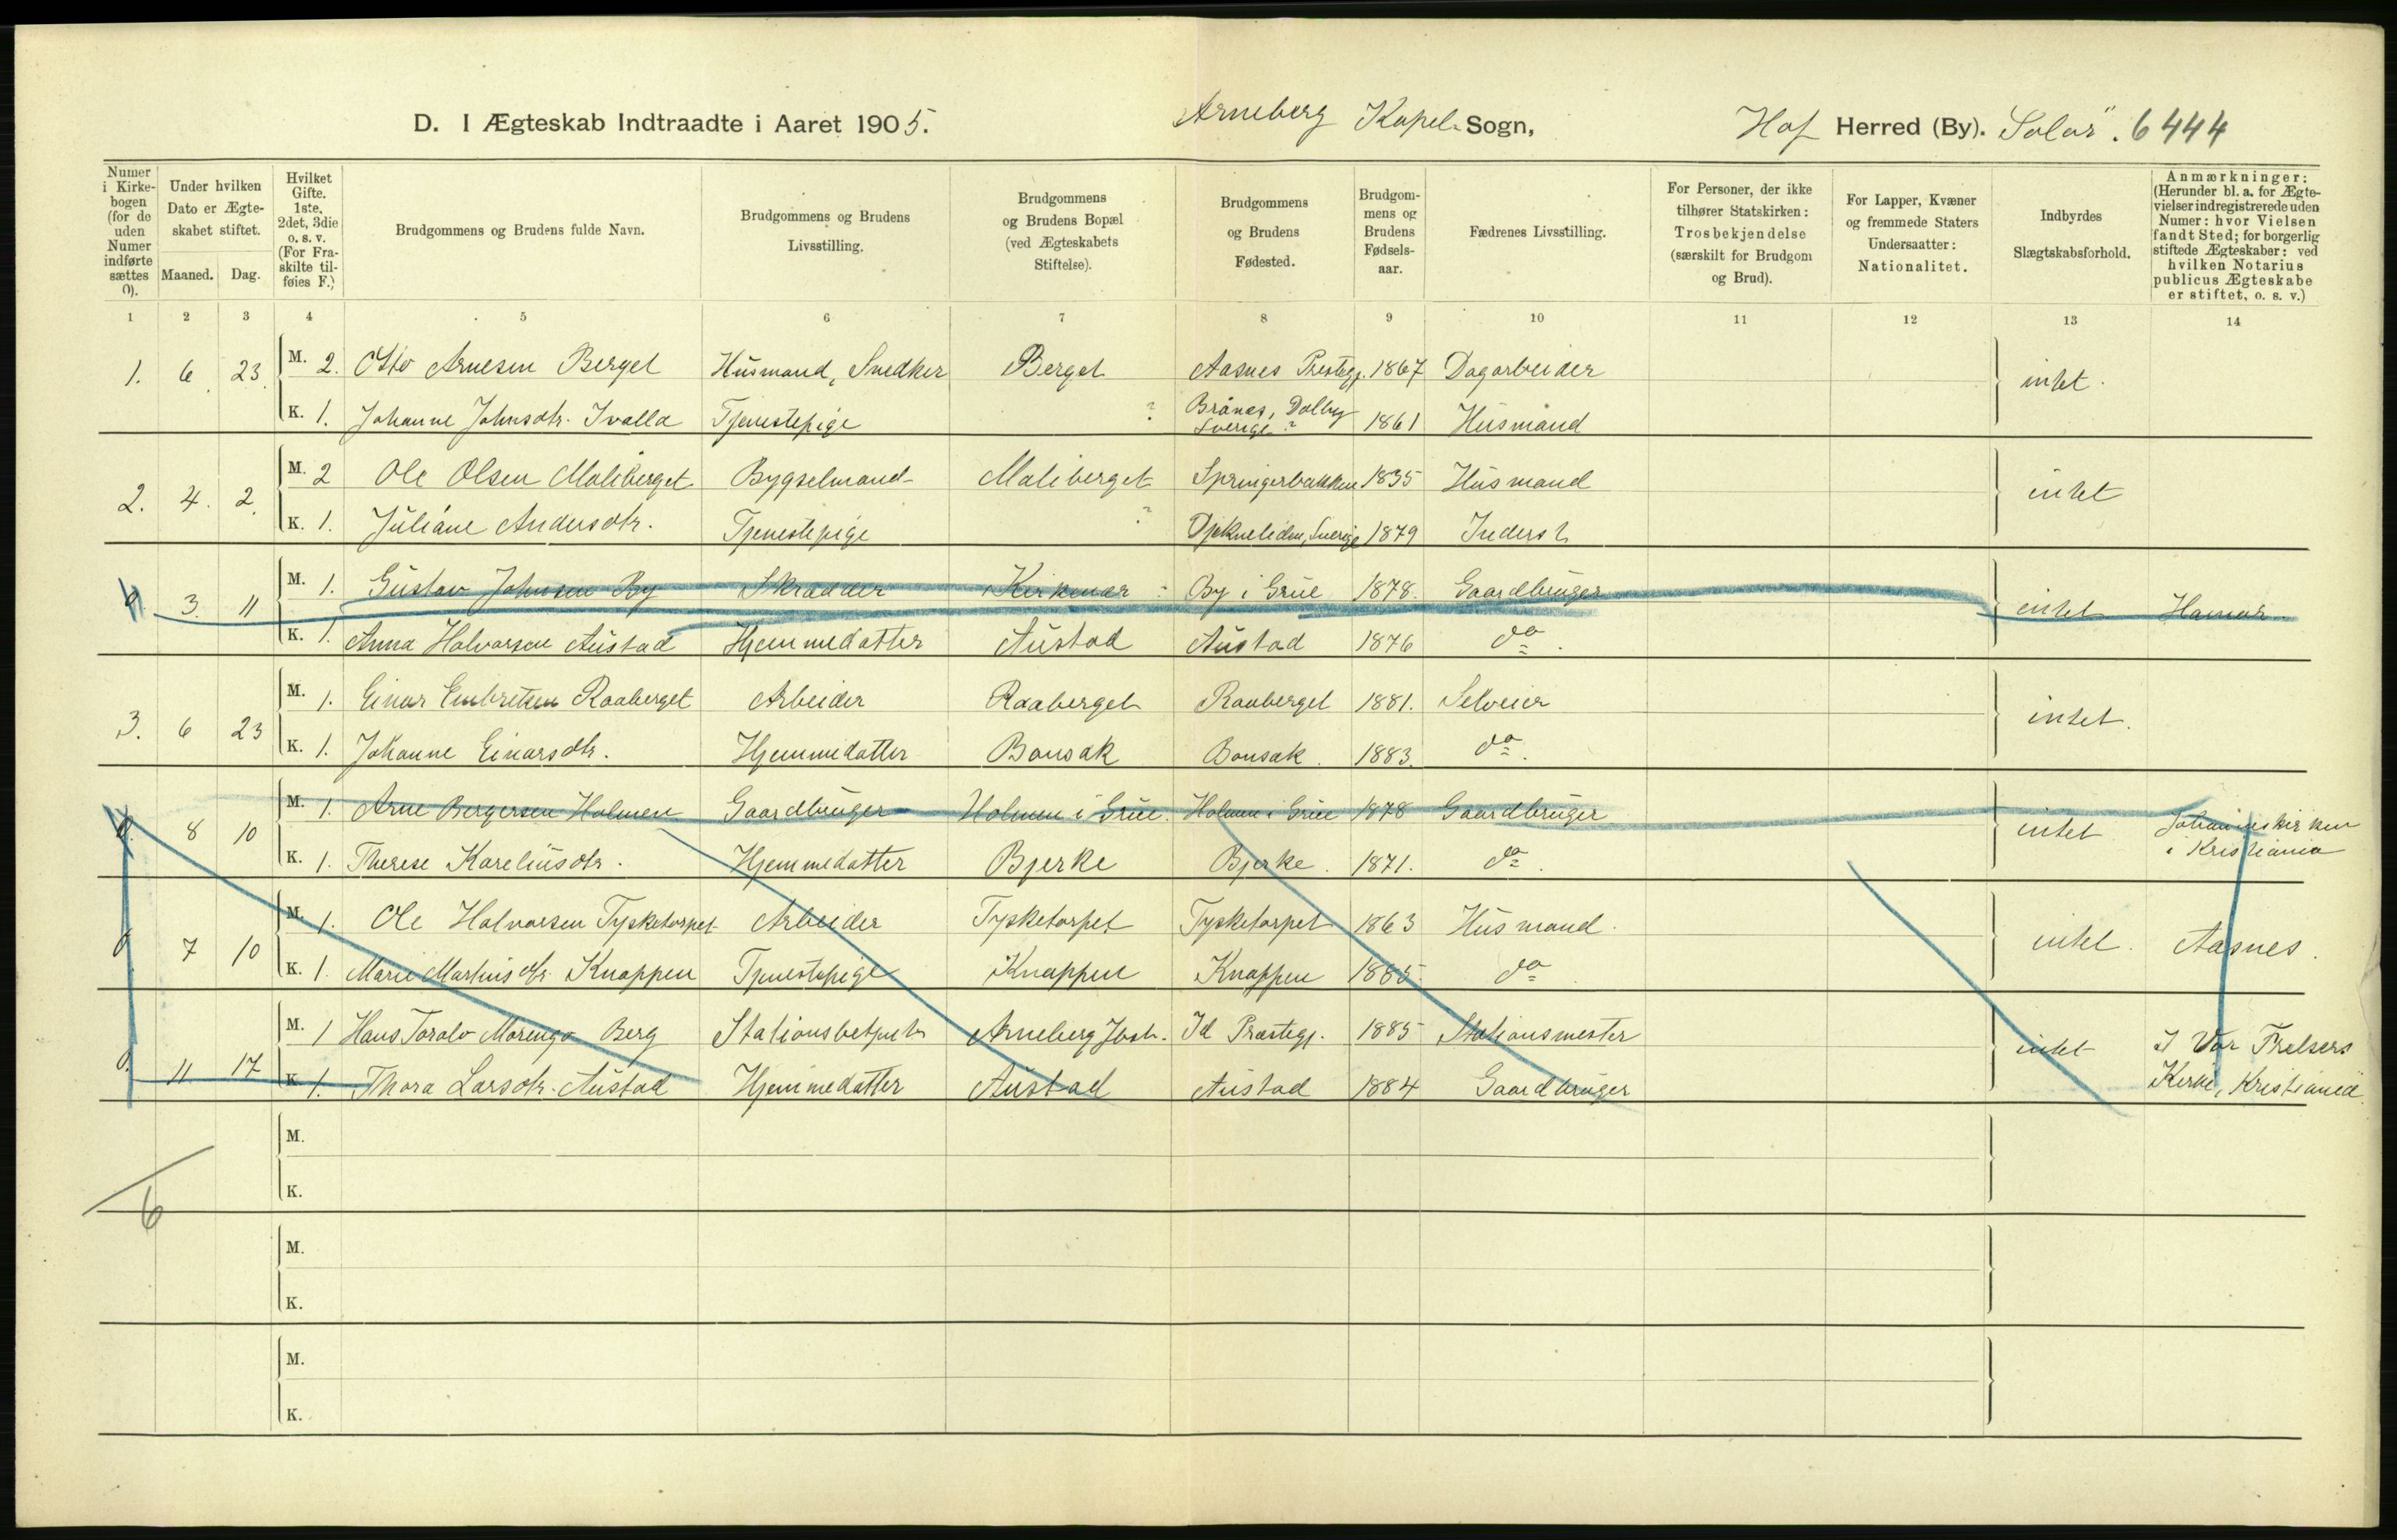 D. I Ægteskab Indtraadte i Aaret 1905. Arneberg Kapel Sogn, Hof Herred (By). Solør. 6444
Numer i Kirkebogen (for de uden Numer indførte sættes 0).
Under hvilken Dato er Ægteskabet stiftet.
Maaned. Dag.
Hvilket Gifte. 1ste, 2det, 3die o. s. v. (For Fraskilte tilføies F.)
Brudgommens og Brudens fulde Navn.
Brudgommens og Brudens Livsstilling.
Brudgommens og Brudens Bopæl (ved Ægteskabets Stiftelse).
Brudgommens og Brudens Fødested.
Brudgommens og Brudens Fødselsaar.
Fædrenes Livsstilling.
For Personer, der ikke tilhører Statskirken: Trosbekjendelse (særskilt for Brudgom og Brud).
For Lapper, Kvæner og fremmede Staters Undersaatter: Nationalitet.
Indbyrdes Slægtskabsforhold.
Anmærkninger: (Herunder bl. a. for Ægtevielser indregistrerede uden Numer: hvor Vielsen fandt Sted; for borgerlig stiftede Ægteskaber: ved hvilken Notarius publicus Ægteskabe er stiftet, o. s. v.)
1 2 3 4 5 6 7 8 9 10 11 12 13 14
1. 6 23 M. 2. Otto Arnesen Berget Husmand, Snedker Berget Aasnes Prestegj. 1867 Dagarbeider intet.
K. 1. Johanne Johnsdtr. Ivalla Tjenestepige ? Brånäs, Dalby Sverige ? 1861 Husmand
2. 4. 2. M. 2 Ole Olsen Maliberget Bygselmand Maliberget Springerbakken 1835 Husmand intet
K. 1. Juliane Andersdtr. Tjenestepige ? Djekneliden, Sverige 1879 Inderst
0 3 11 M. 1. Gustav Johnsen By Skrædder Kirkenær By i Grue 1878. Gaardbruger intet Hamar
K. 1. Anna Halvorsen Austad Hjemmedatter Austad Austad 1876 do.
3. 6 23 M. 1. Einar Embretsen Raaberget Arbeider Raaberget Raaberget 1881. Selveier intet.
K. 1. Johanne Einarsdtr. Hjemmedatter Bonsak Bonsak. 1883. do.
0. 8 10 M. 1. Arne Bergersen Holmen Gaardbruger Holmen i Grue. Holmen i Grue 1878 Gaardbruger intet Johanneskirken i Kristiania
K. 1. Therese Kareliusdtr. Hjemmedatter Bjerke Bjerke. 1871. do.
0 7 10 M. 1. Ole Halvorsen Tysketorpet Arbeider Tysketorpet Tysketorpet 1863 Husmand. intet. Aasnes.
K. 1. Marie Martinisdtr. Knappen Tjenestepige Knappen Knappen 1885. do
0. 11 17 M. 1 Hans Toralv Marengo Berg Stationsbetjent Arneberg Jbst. Id Præstegj. 1885 Stationsmester intet I Vor Frelsers Kirke, Kristiania.
K. 1. Thora Larsdtr. Austad Hjemmedatter Austad Austad 1884 Gaardbruger
M.
K.
6
M.
K.
M.
K.